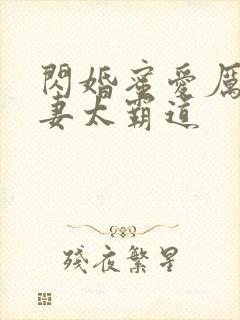 閃婚蜜愛厲
妻太霸道
殘夜繁星